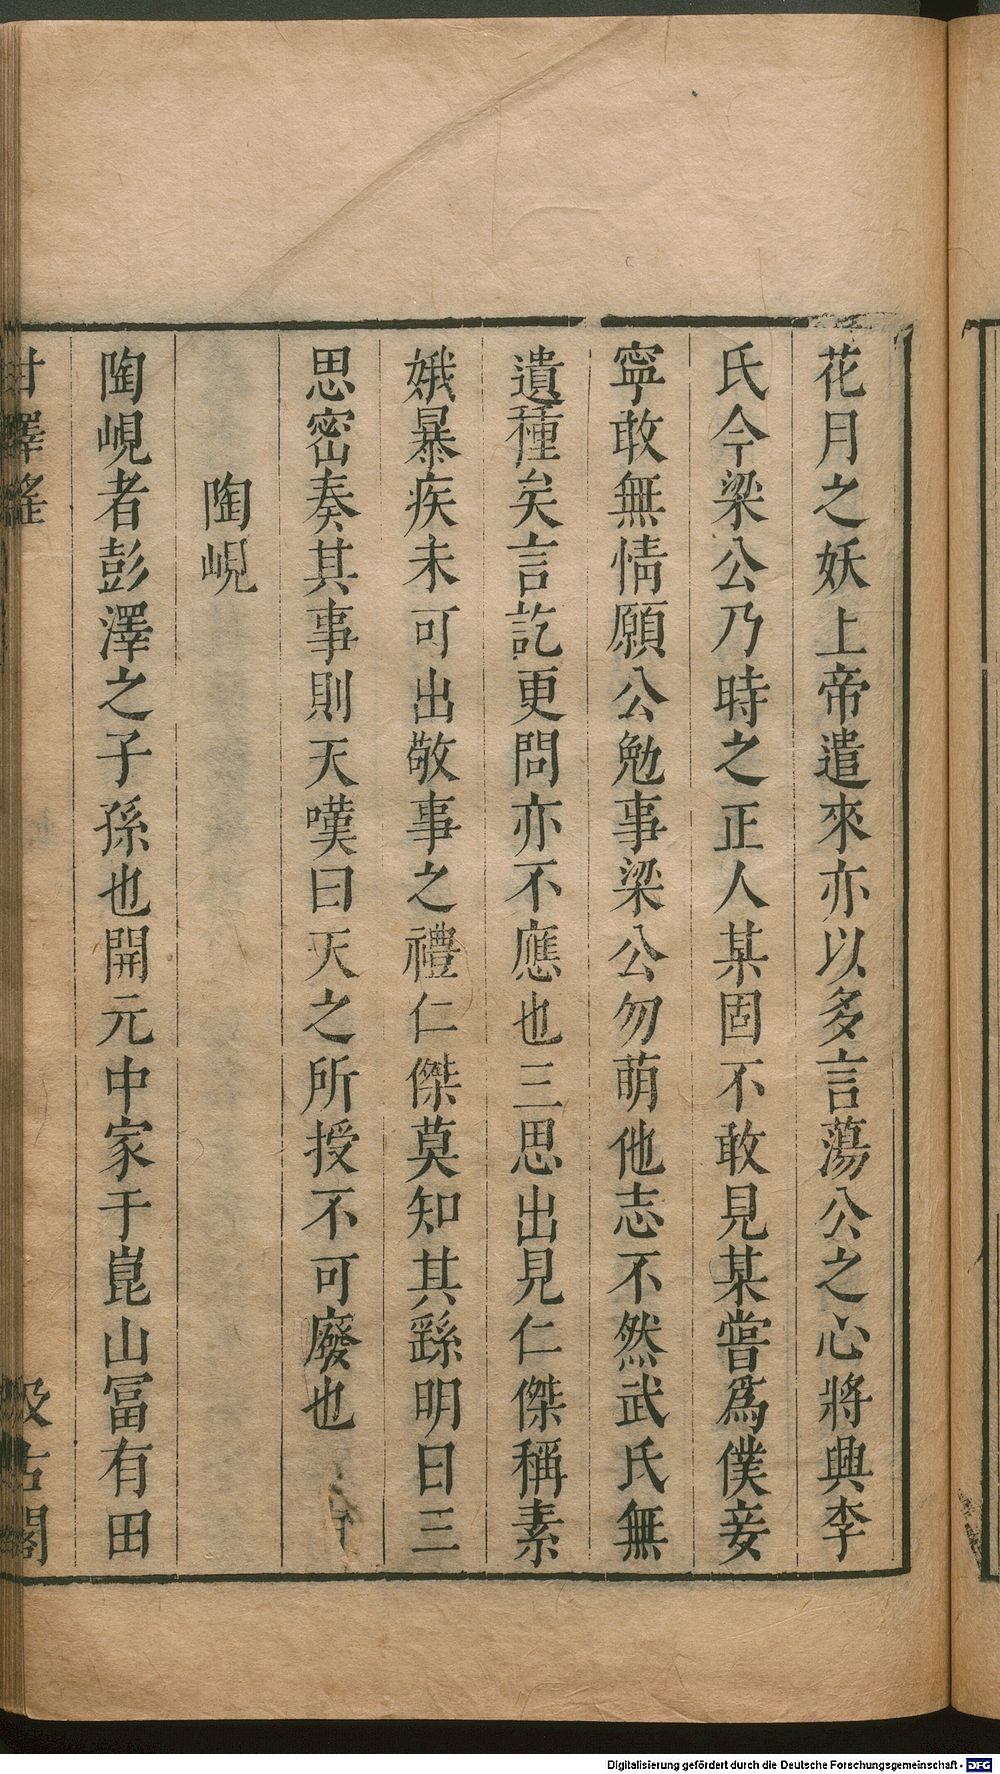 花月之妖上帝遣來亦以多言蕩公之心將興李
氏今梁公乃時之正人某固不敢見某嘗爲僕妾
寧敢無情願公勉事梁公勿萌他志不然武氏無
遺種矣言訖更問亦不應也三思出見仁傑稱素
娥暴疾未可出敬事之禮仁傑莫知其繇明日三
思密奏其事則天嘆曰天之所授不可廢也
陶峴
陶峴者彭澤之子孫也開元中家于崑山冨有田
甘澤謠
汲古閣
Digitalisierung gefördert durch die Deutsche Forschungsgemeinschaft - DFG